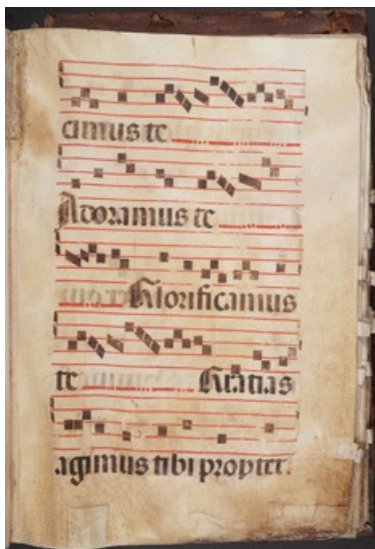 cimus te
Adoramus te
Glorificamus
te Gratias
agimus tibi propter.